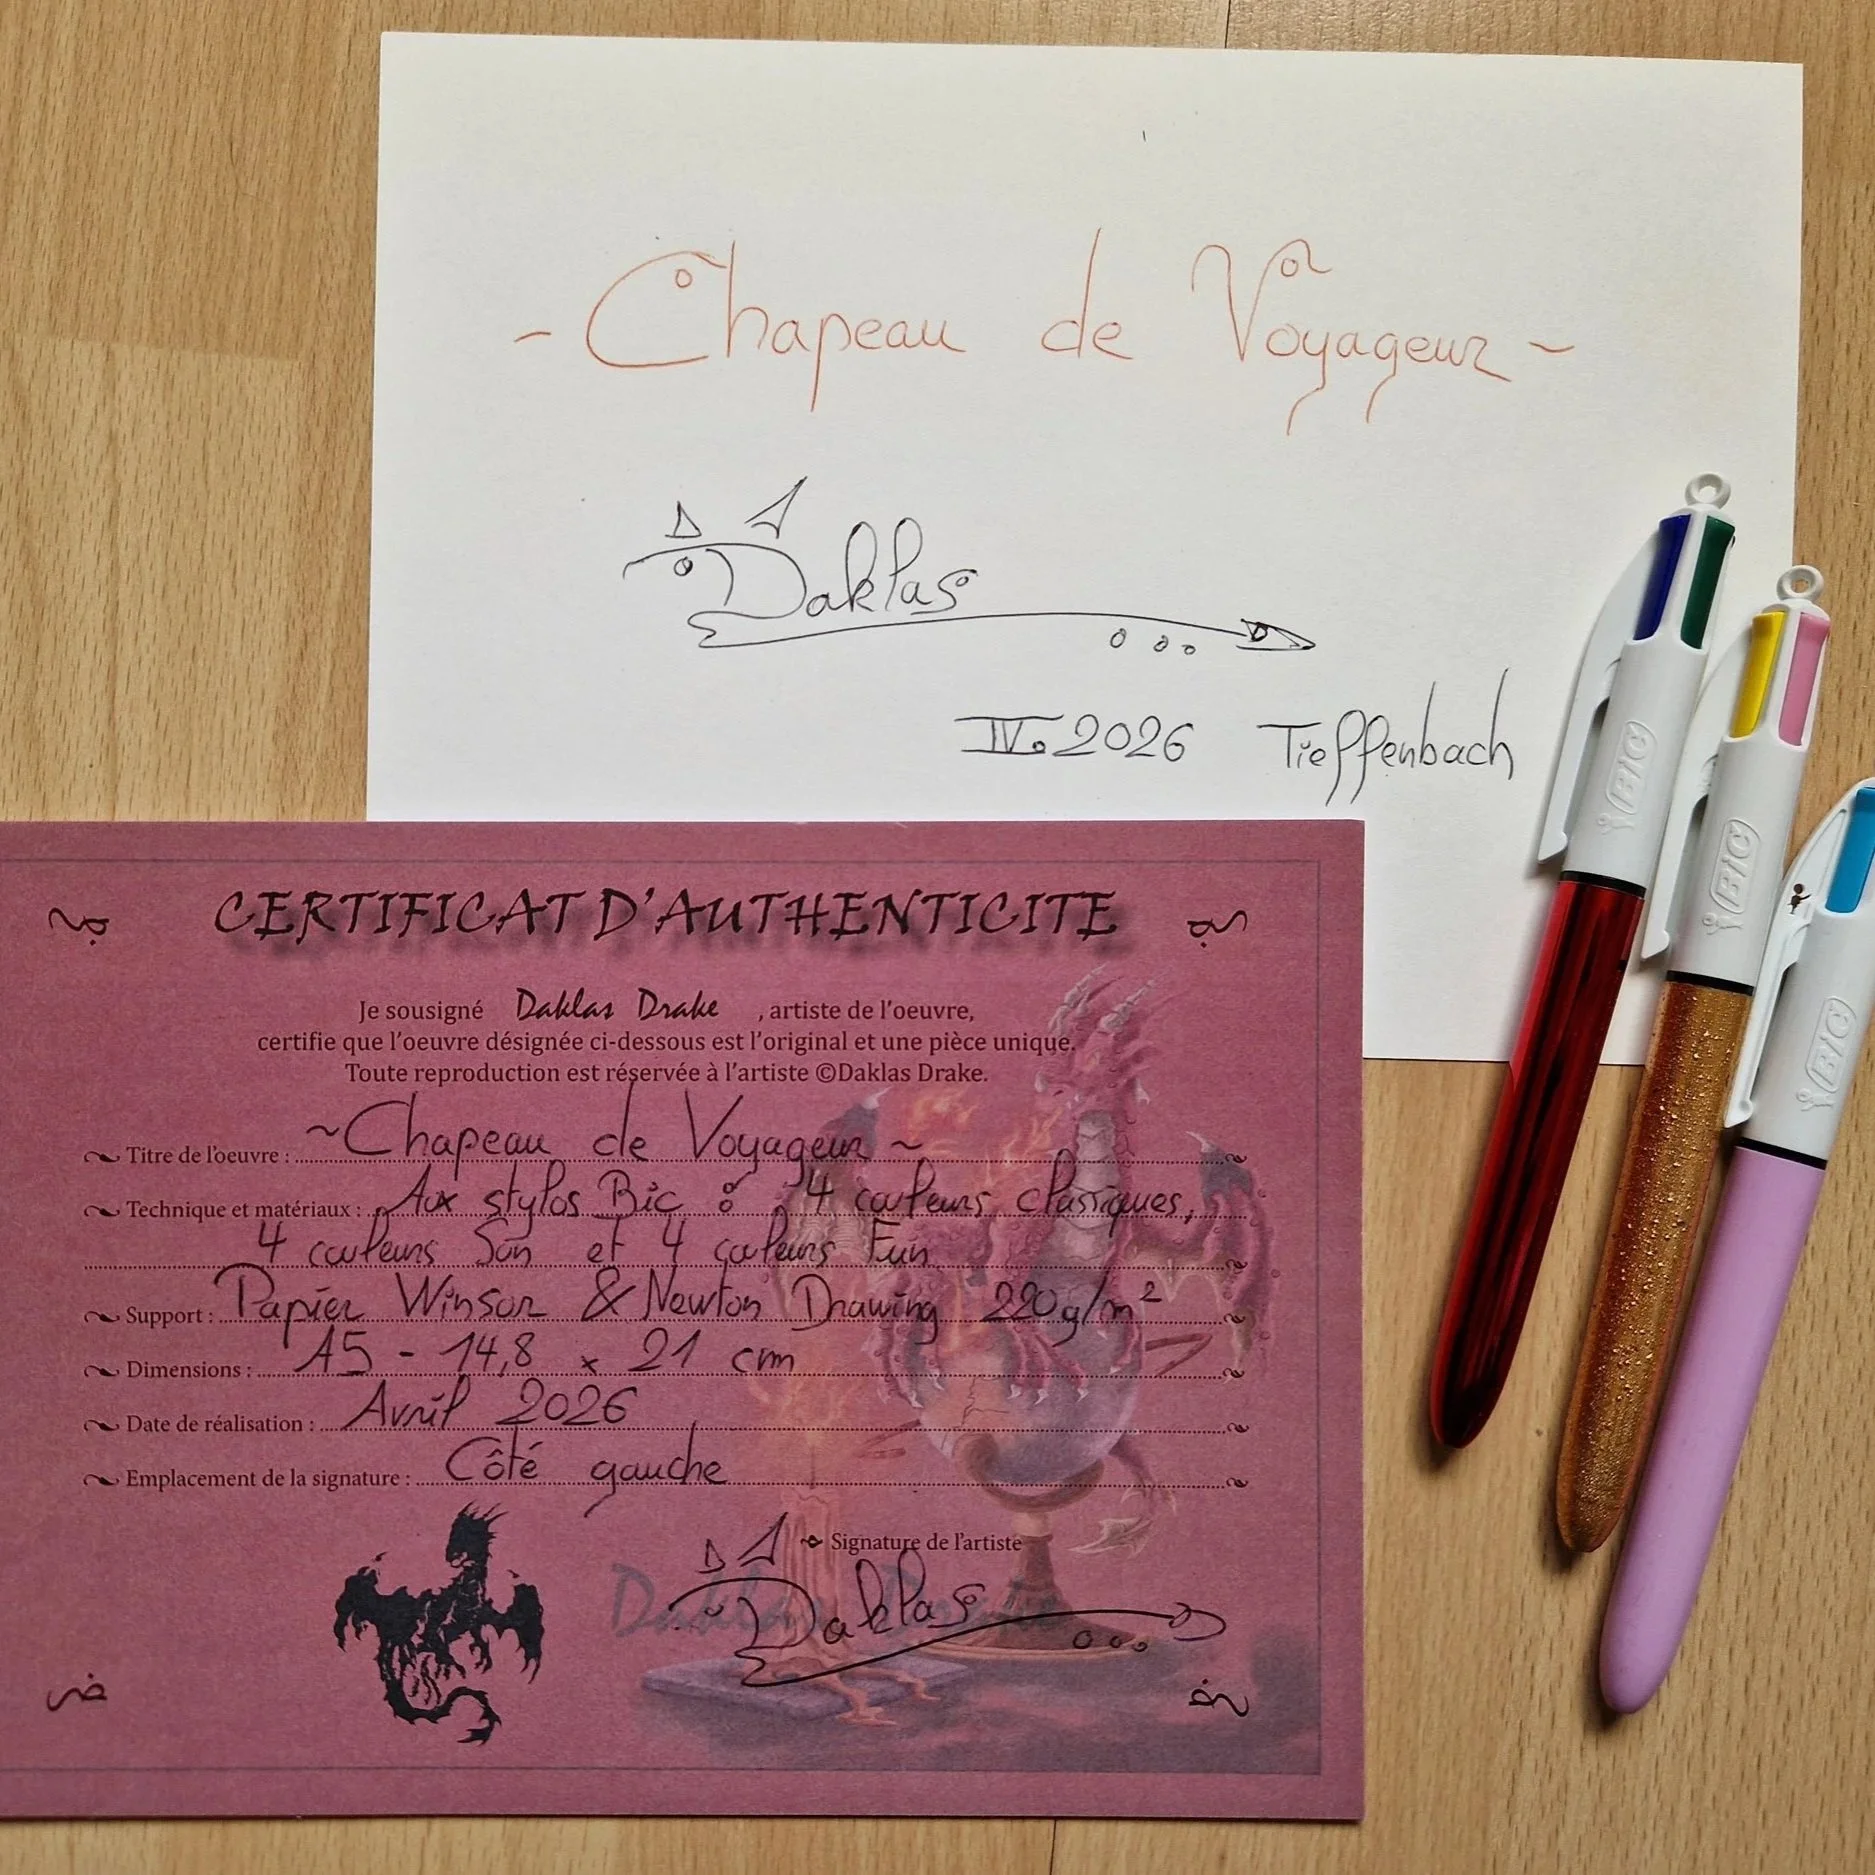 ~ Chapeau de Voyageur ~
Daklas
IV.2026 Tieffenbach
BIC
BIC
BIC
CERTIFICAT D'AUTHENTICITE
Je sousigné Daklas Drake , artiste de l'oeuvre,
certifie que l'oeuvre désignée ci-dessous est l'original et une pièce unique.
Toute reproduction est réservée à l'artiste ©Daklas Drake.
Titre de l'oeuvre : ~ Chapeau de Voyageur ~
Technique et matériaux : Aux stylos Bic : 4 couleurs classiques,
4 couleurs Sun et 4 couleurs Fun
Support : Papier Winsor & Newton Drawing 220g/m²
Dimensions : A5 - 14,8 x 21 cm
Date de réalisation : Avril 2026
Emplacement de la signature : Côté gauche
Signature de l'artiste
Daklas